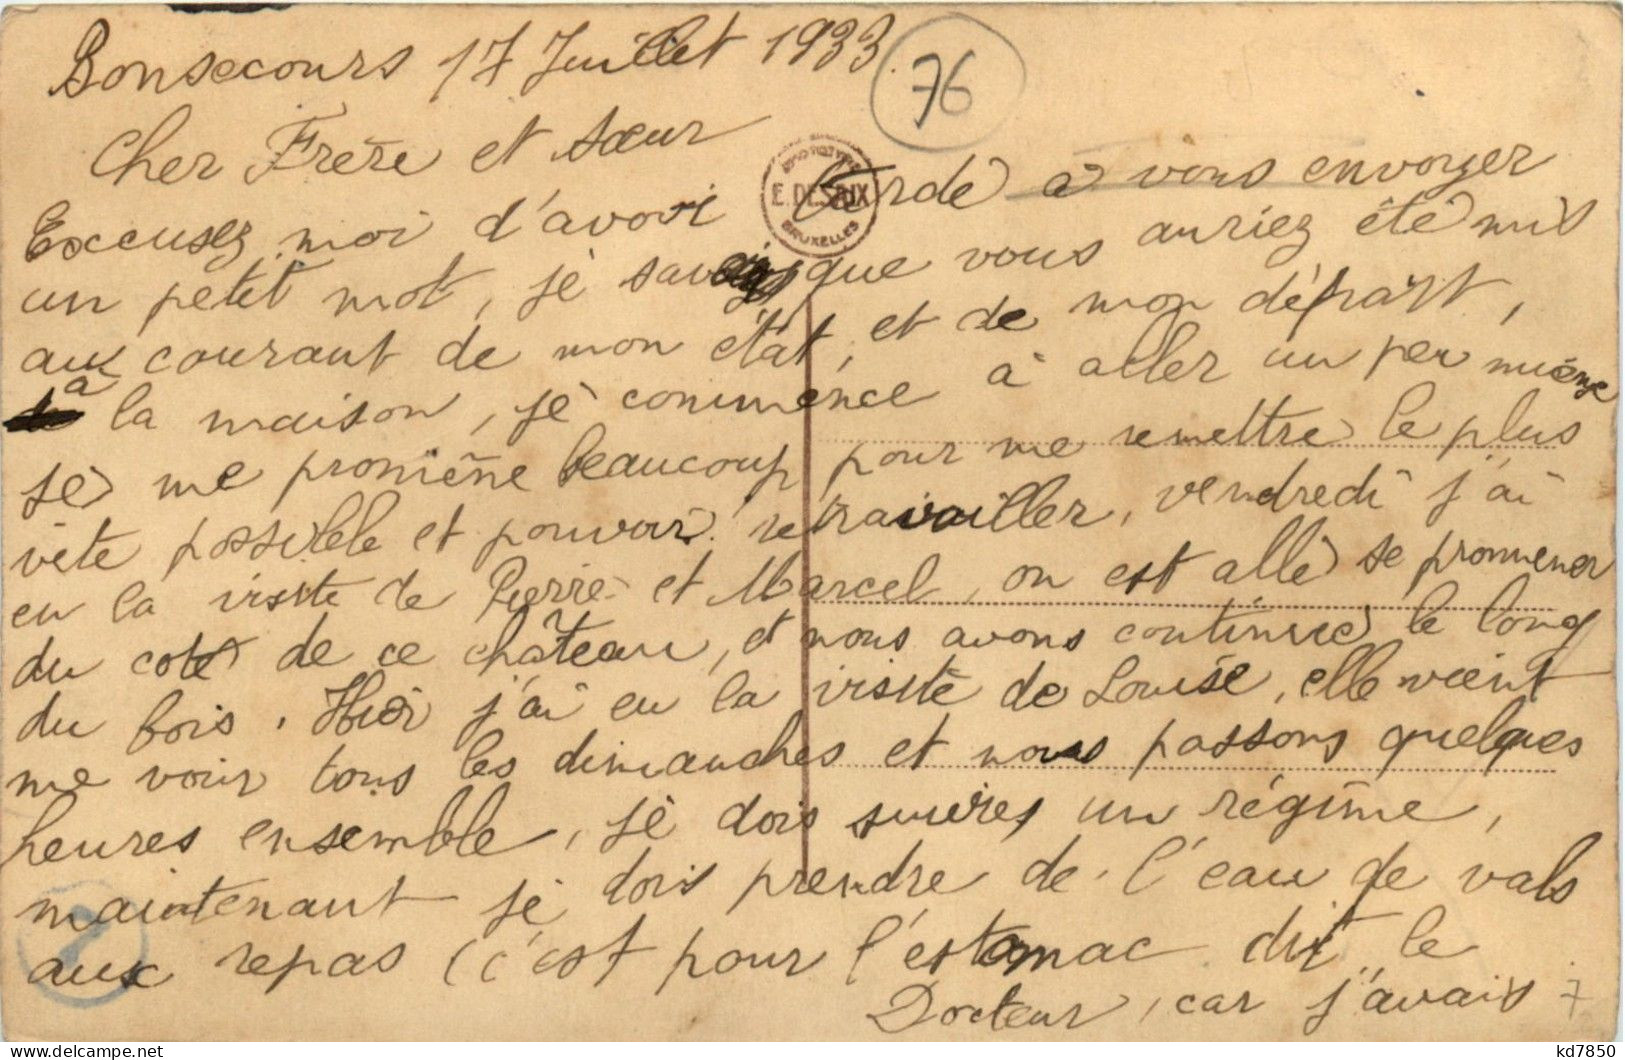 Bonsecours 17 Juillet 1933.
76
Cher Frère et sœur
PHOTOTYPIE
E. DESAIX
BRUXELLES
Excusez moi d'avoir tardé à vous envoyer
un petit mot, je savais que vous auriez été mis
aux courant de mon état, et de mon départ,
à la maison, je commence à aller un peu mieux
je me promène beaucoup pour me remettre le plus
vite possible et pouvoir retravailler, vendredi j'ai
eu la visite de Pierre et Marcel, on est allé se promener
du coté de ce château, et nous avons continué le long
du bois. Hier j'ai eu la visite de Louise, elle vient
me voir tous les dimanches et nous passons quelques
heures ensemble, je dois suivres un régime,
maintenant je dois prendre de l'eau de vals
aux repas (c'est pour l'estomac dit le
Docteur, car j'avais
7
kd7850